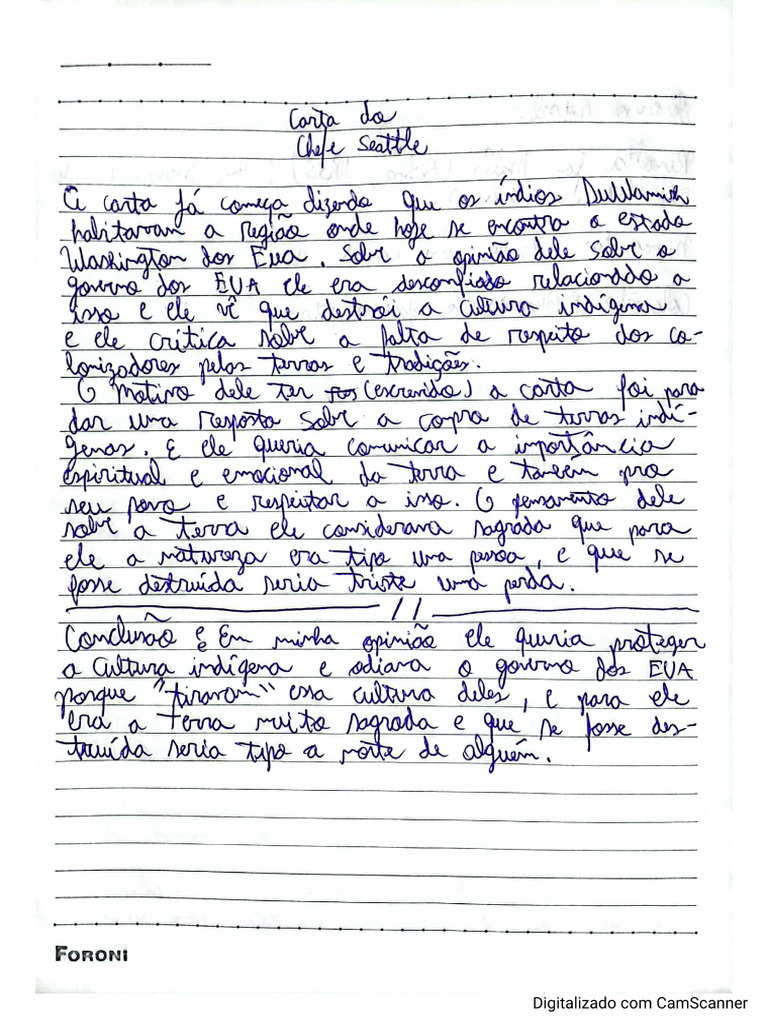 Carta do
Chefe Seattle
A carta já começa dizendo que os índios DuWamish
habitavam a região onde hoje se encontra o estado
Washington dos Eua. Sobre a opinião dele sobre o
governo dos EUA ele era desconfiado relacionado a
isso e ele vê que destrói a cultura indígena
e ele crítica sobre a falta de respeito dos co-
lonizadores pelas terras e tradições.
O motivo dele ter (escrevido) a carta foi para
dar uma resposta sobre a compra de terras indí-
genas. E ele queria comunicar a importância
espiritual e emocional da terra e tambem pro
seu povo e respeitar a isso. O pensamento dele
sobre a terra ele considerava sagrada que para
ele a natureza era tipo uma pessoa, e que se
fosse destruída seria triste uma perda.
//
Conclusão e Em minha opinião ele queria proteger
a Cultura indígena e odiava o governo dos EUA
porque "tiravam" essa cultura deles, e para ele
era a terra muito sagrada e que se fosse des-
truída seria tipo a morte de alguém.
FORONI
Digitalizado com CamScanner